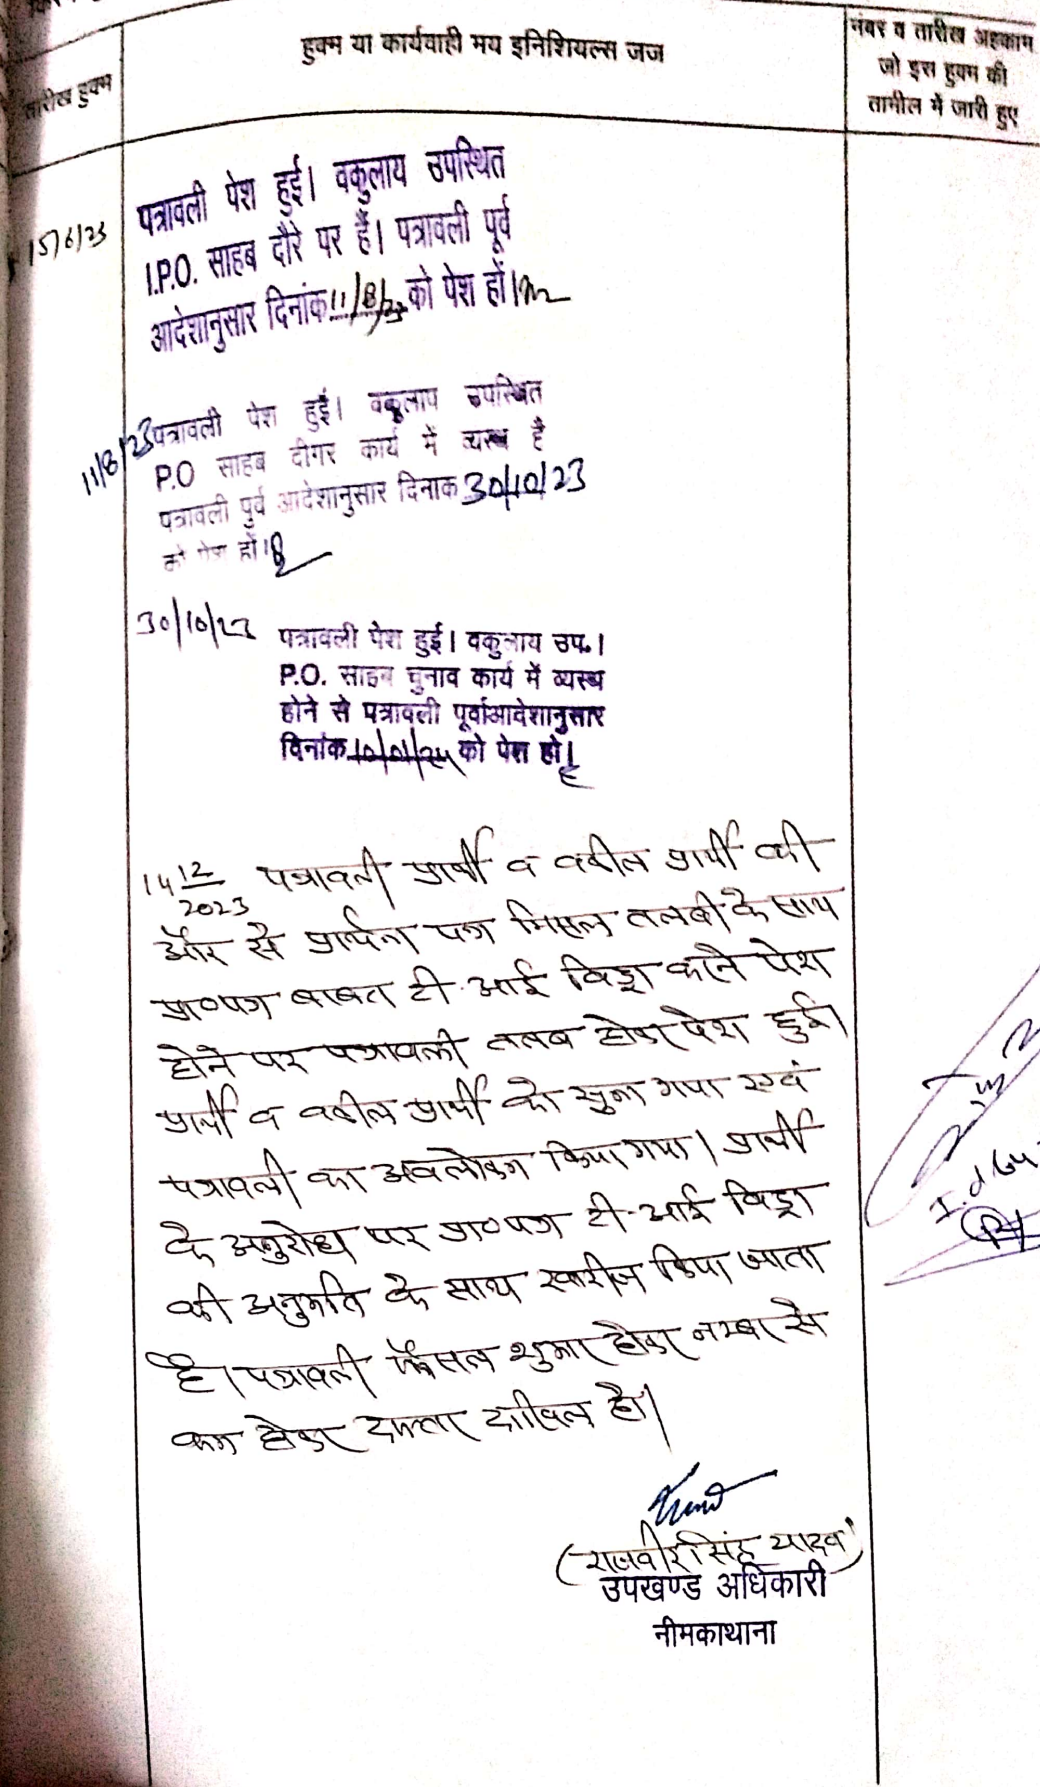 तारीख हुक्म
हुक्म या कार्यवाही मय इनिशियल्स जज
नंबर व तारीख अहकाम
जो इस हुक्म की
तामील में जारी हुए
15/6/23
पत्रावली पेश हुई। वकुलाय उपस्थित
I.P.O. साहब दौरे पर हैं। पत्रावली पूर्व
आदेशानुसार दिनांक 11/8/23 को पेश हों।
11/8/23
पत्रावली पेश हुई। वकुलाय उपस्थित
P.O साहब दीगर कार्य में व्यस्थ है
पत्रावली पुर्व आदेशानुसार दिनाक 30/10/23
को पेश हों।
30/10/23
पत्रावली पेश हुई। वकुलाय उप.।
P.O. साहब चुनाव कार्य में व्यस्थ
होने से पत्रावली पूर्वाआदेशानुसार
दिनांक 10/01/24 को पेश हो।
14 12/2023 पत्रावली प्रार्थी व वकील प्रार्थी की
और से प्रार्थना पत्र मिसल तलबी के साथ
प्रा०पत्र बाबत टी.आई विड्रा करने पेश
होने पर पत्रावली तलब होकर पेश हुई।
प्रार्थी व वकील प्रार्थी को सुना गया एवं
पत्रावली का अवलोकन किया गया। प्रार्थी
के अनुरोध पर प्रा०पत्र टी.आई विड्रा
की अनुमति के साथ खारीज किया जाता
है। पत्रावली फैसल शुमार होकर नम्बर से
कम होकर दफ्तर दाखिल हो।
(राजवीर सिंह यादव)
उपखण्ड अधिकारी
नीमकाथाना